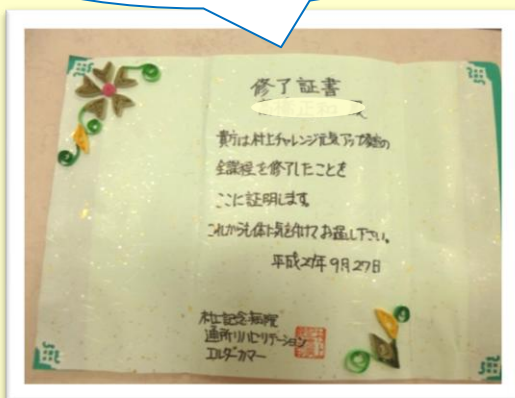 修了証書
殿
貴方は村上チャレンジ元気アップ教室の
全課程を修了したことを
ここに証明します。
これからも体に気を付けてお過し下さい。
平成27年9月27日
村上記念病院
通所リハビリテーション
エルダーカマー